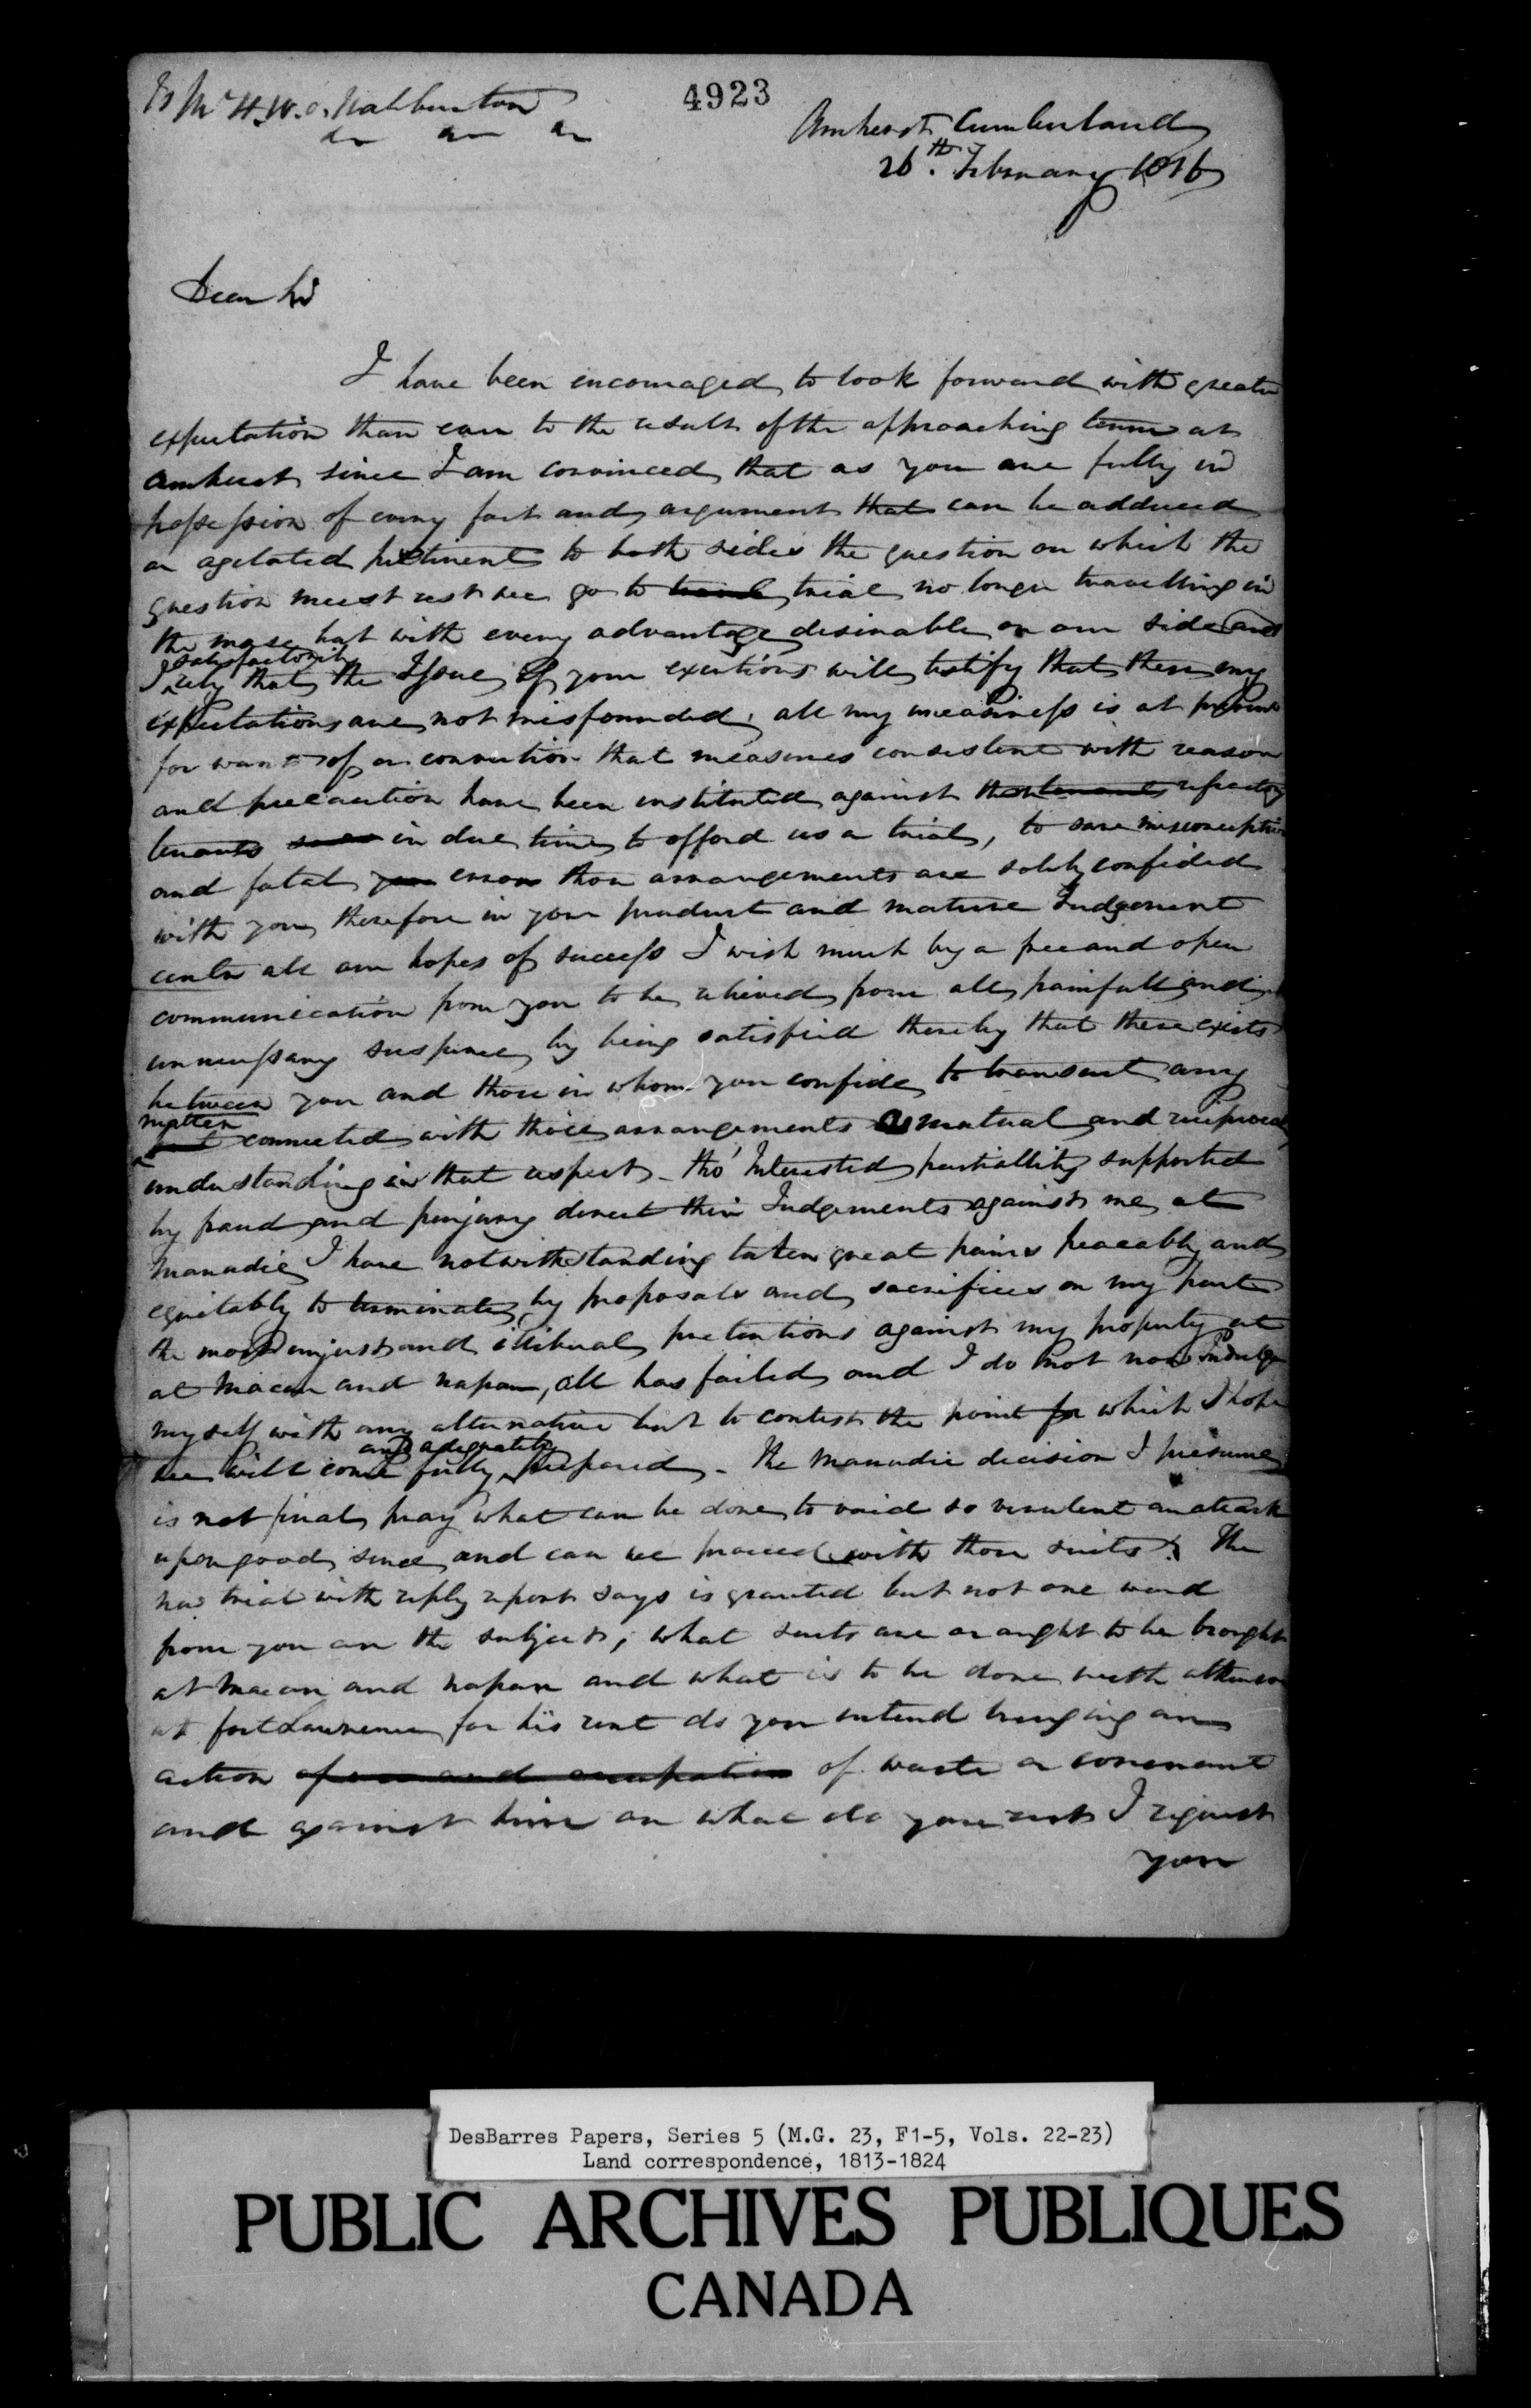 To Mr H. W. O. Haliburton
4923
Amherst Cumberland
26th. February 1816
Dear Sir
I have been encouraged to look forward with greater
expectation than ever to the result of the approaching term at
Amherst since I am convinced that as you are fully in
possession of every fact and argument that can be adduced
or agitated pertinent to both sides the question on which the
question must rest we go to trial no longer travelling in
the maze but with every advantage desirable on our side and
I satisfactorily rely that the Issue of your exertions will testify that these my
expectations are not misfounded, all my uneasiness is at present
for want of a conviction that measures consistent with reason
and precaution have been instituted against the tenants refractory
tenants in due time to afford us a trial, to save misconception
and fatal errors those arrangements are solely confided
with you, therefore in your prudent and mature Judgement
center all our hopes of success I wish much by a free and open
communication from you to be relieved from all painfull and
unnecessary suspence, by being satisfied thereby that there exists
between you and those in whom you confide to transact any
matter connected with those arrangements a mutual and reciprocal
understanding in that respect - tho' Interested partiallity supported
by fraud and perjury direct their Judgements against me at
Manudie I have notwithstanding taken great pains peaceably and
equitably to terminate, by proposals and sacrifices on my part
the most unjust and illiberal pretentions against my property at
at Macan and napan, all has failed and I do not now indulge
myself with any alternative but to contest the point for which I hope
we will come fully and adequately prepared - the Manudie decision I presume
is not final, pray what can be done to void so virulent an attack
upon good sence and can we proceed with those suits? The
new trial with reply report says is granted but not one word
from you on the subject, what suits are or ought to be brought
at Macan and napan and what is to be done with atkinson
at fort Lawrence for his rent do you intend bringing an
action of use and occupation of waste or covenant
and against him or what do you rest I request
you
DesBarres Papers, Series 5 (M.G. 23, F1-5, Vols. 22-23)
Land correspondence, 1813-1824
PUBLIC ARCHIVES PUBLIQUES
CANADA